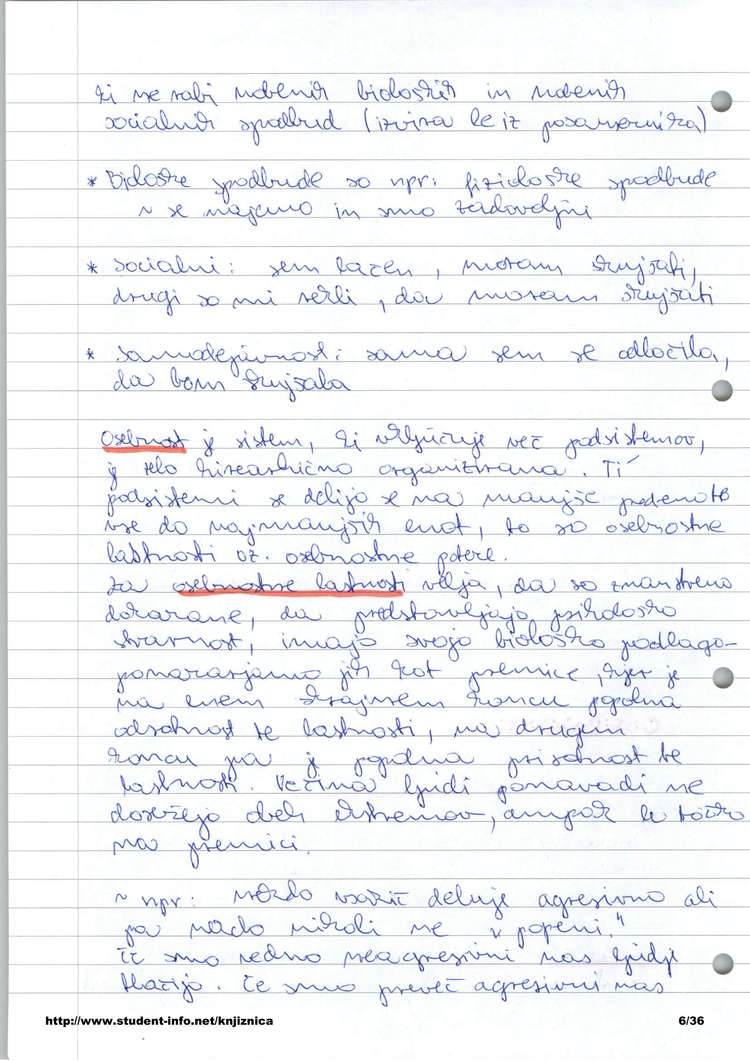 ki ne rabi nobenih bioloških in nobenih
socialnih spodbud (izvira le iz posameznika)
* Biološke spodbude so npr: fiziološke spodbude
~ se najemo in smo zadovoljni
* socialni: sem lačen, moram shujšati,
drugi so mi rekli, da moram shujšati
* samodejavnost: sama sem se odločila,
da bom shujšala
Osebnost je sistem, ki vključuje več podsistemov,
je zelo hierarhično organizirana. Ti
podsistemi se delijo še na manjše podenote
vse do najmanjših enot, to so osebnostne
lastnosti oz. osebnostne poteze.
Za osebnostne lastnosti velja, da so znanstveno
dokazane, da predstavljajo psihološko
stvarnost, imajo svojo biološko podlago-
ponazarjamo jih kot premice, kjer je
na enem skrajnem koncu popolna
odsotnost te lastnosti, na drugem
koncu pa je popolna prisotnost te
lastnosti. Večina ljudi ponavadi ne
dosežejo obeh ekstremov, ampak le točko
na premici.
~ npr: nekdo vsakič deluje agresivno ali
pa nekdo nikoli ne v popeni."
Če smo vedno neagresivni nas ljudje
tlačijo. Če smo preveč agresivni nas
http://www.student-info.net/knjiznica
6/36